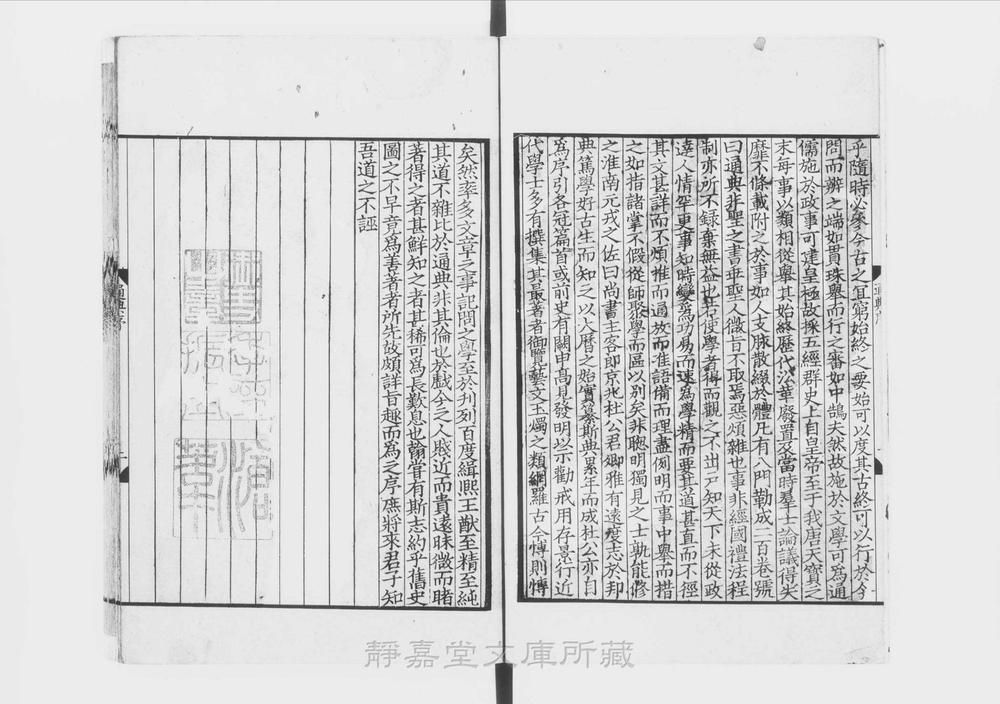 乎隨時必參今古之宜窮始終之要始可以度其古終可以行於今
問而辨之端如貫珠舉而行之審如中鵠夫然故施於文學可爲通
儒施於政事可建皇極故採五經群史上自皇帝至于我唐天寶之
末每事以類相從舉其始終歷代沿革廢置及當時羣士論議得失
靡不條載附之於事如人支脉散綴於體凡有八門勒成二百卷號
曰通典非聖之書乖聖人微旨不取焉惡煩雜也事非經國禮法程
制亦所不録棄無益也若使學者得而觀之不出戶知天下未從政
達人情罕更事知時變爲功易而速爲學精而要其道甚直而不徑
其文甚詳而不煩推而通放而准語備而理盡例明而事中舉而措
之如指諸掌不假從師聚學而區以別矣非聰明獨見之士孰能修
之淮南元戎之佐曰尚書主客郎京兆杜公君卿雅有遠度志於邦
典篤學好古生而知之以大曆之始實纂斯典累年而成杜公亦自
爲序引各冠篇首或前史有闕申高見發明以示勸戒用存景行近
代學士多有撰集其最著者御覽藝文玉燭之類網羅古今愽則愽
矣然率多文章之事記問之學至於刋列百度緝熙王猷至精至純
其道不雜比於通典非其倫也於戲今之人賤近而貴遠昧微而睹
著得之者甚鮮知之者甚稀可爲長歎息也翰嘗有斯志約乎舊史
圖之不早竟爲善著者所先故頗詳旨趣而爲之序庶將來君子知
吾道之不誣
靜嘉堂文庫所藏